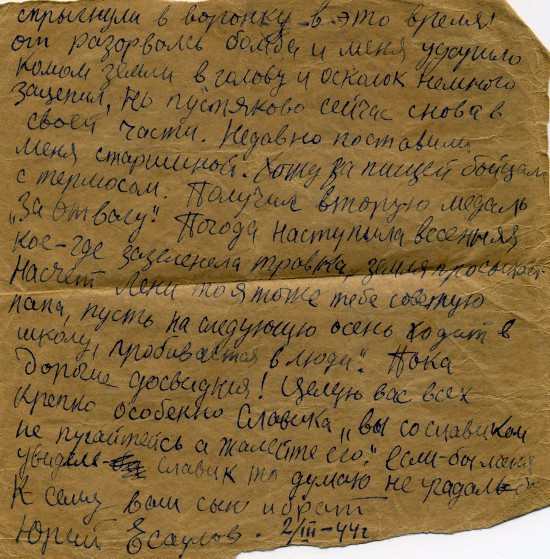 спрыгнули в воронку в это время
от разорвалсь бомба и меня ударило
комом земли в голову и осколок немного
зацепил, но пустяково сейчас снова в
своей части. Недавно поставили
меня старшиной. Хожу за пищей бойцам
с термосом. Получил вторую медаль
„За отвагу“ Погода наступила весенняя
кое-где зазеленела травка, земля просыхает.
Насчет Лени то я тоже тебе советую
папа, пусть на следующую осень ходит в
школу, „пробивается в люди“. Пока
дорогие досвидния! Целую вас всех
крепко особенно Славика „вы со славиком
не ругайтейсь а жалейте его.“ если-бы меня
увидел славик то думаю не угадал-бы
К сему ваш сын и брат
Юрей Есаулов. 2/III-44г